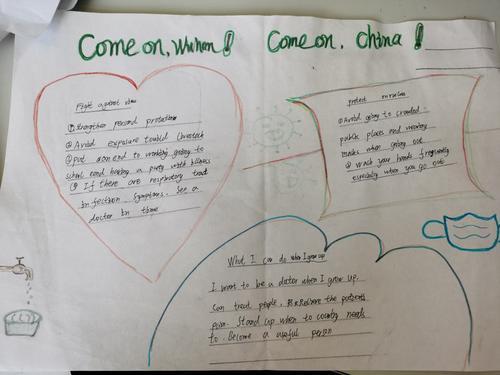 Come on, Wuhan! Come on, China!
Fight against
① Strengthen personal protection
② Avoid exposure livestock
③ put an end to working going to
school and having a party with illness
④ If there are respiratory tract
infection symptoms. See a
doctor in time
protect ourselves
① Avoid going to crowded
public places and wearing
masks when going out
② Wash your hands frequently
especially when you go out
What I can do when I grow up
I want to be a doctor when I grow up.
Can treat people. Relieve the patients
pain. Stand up when to country needs
to. Become a useful person